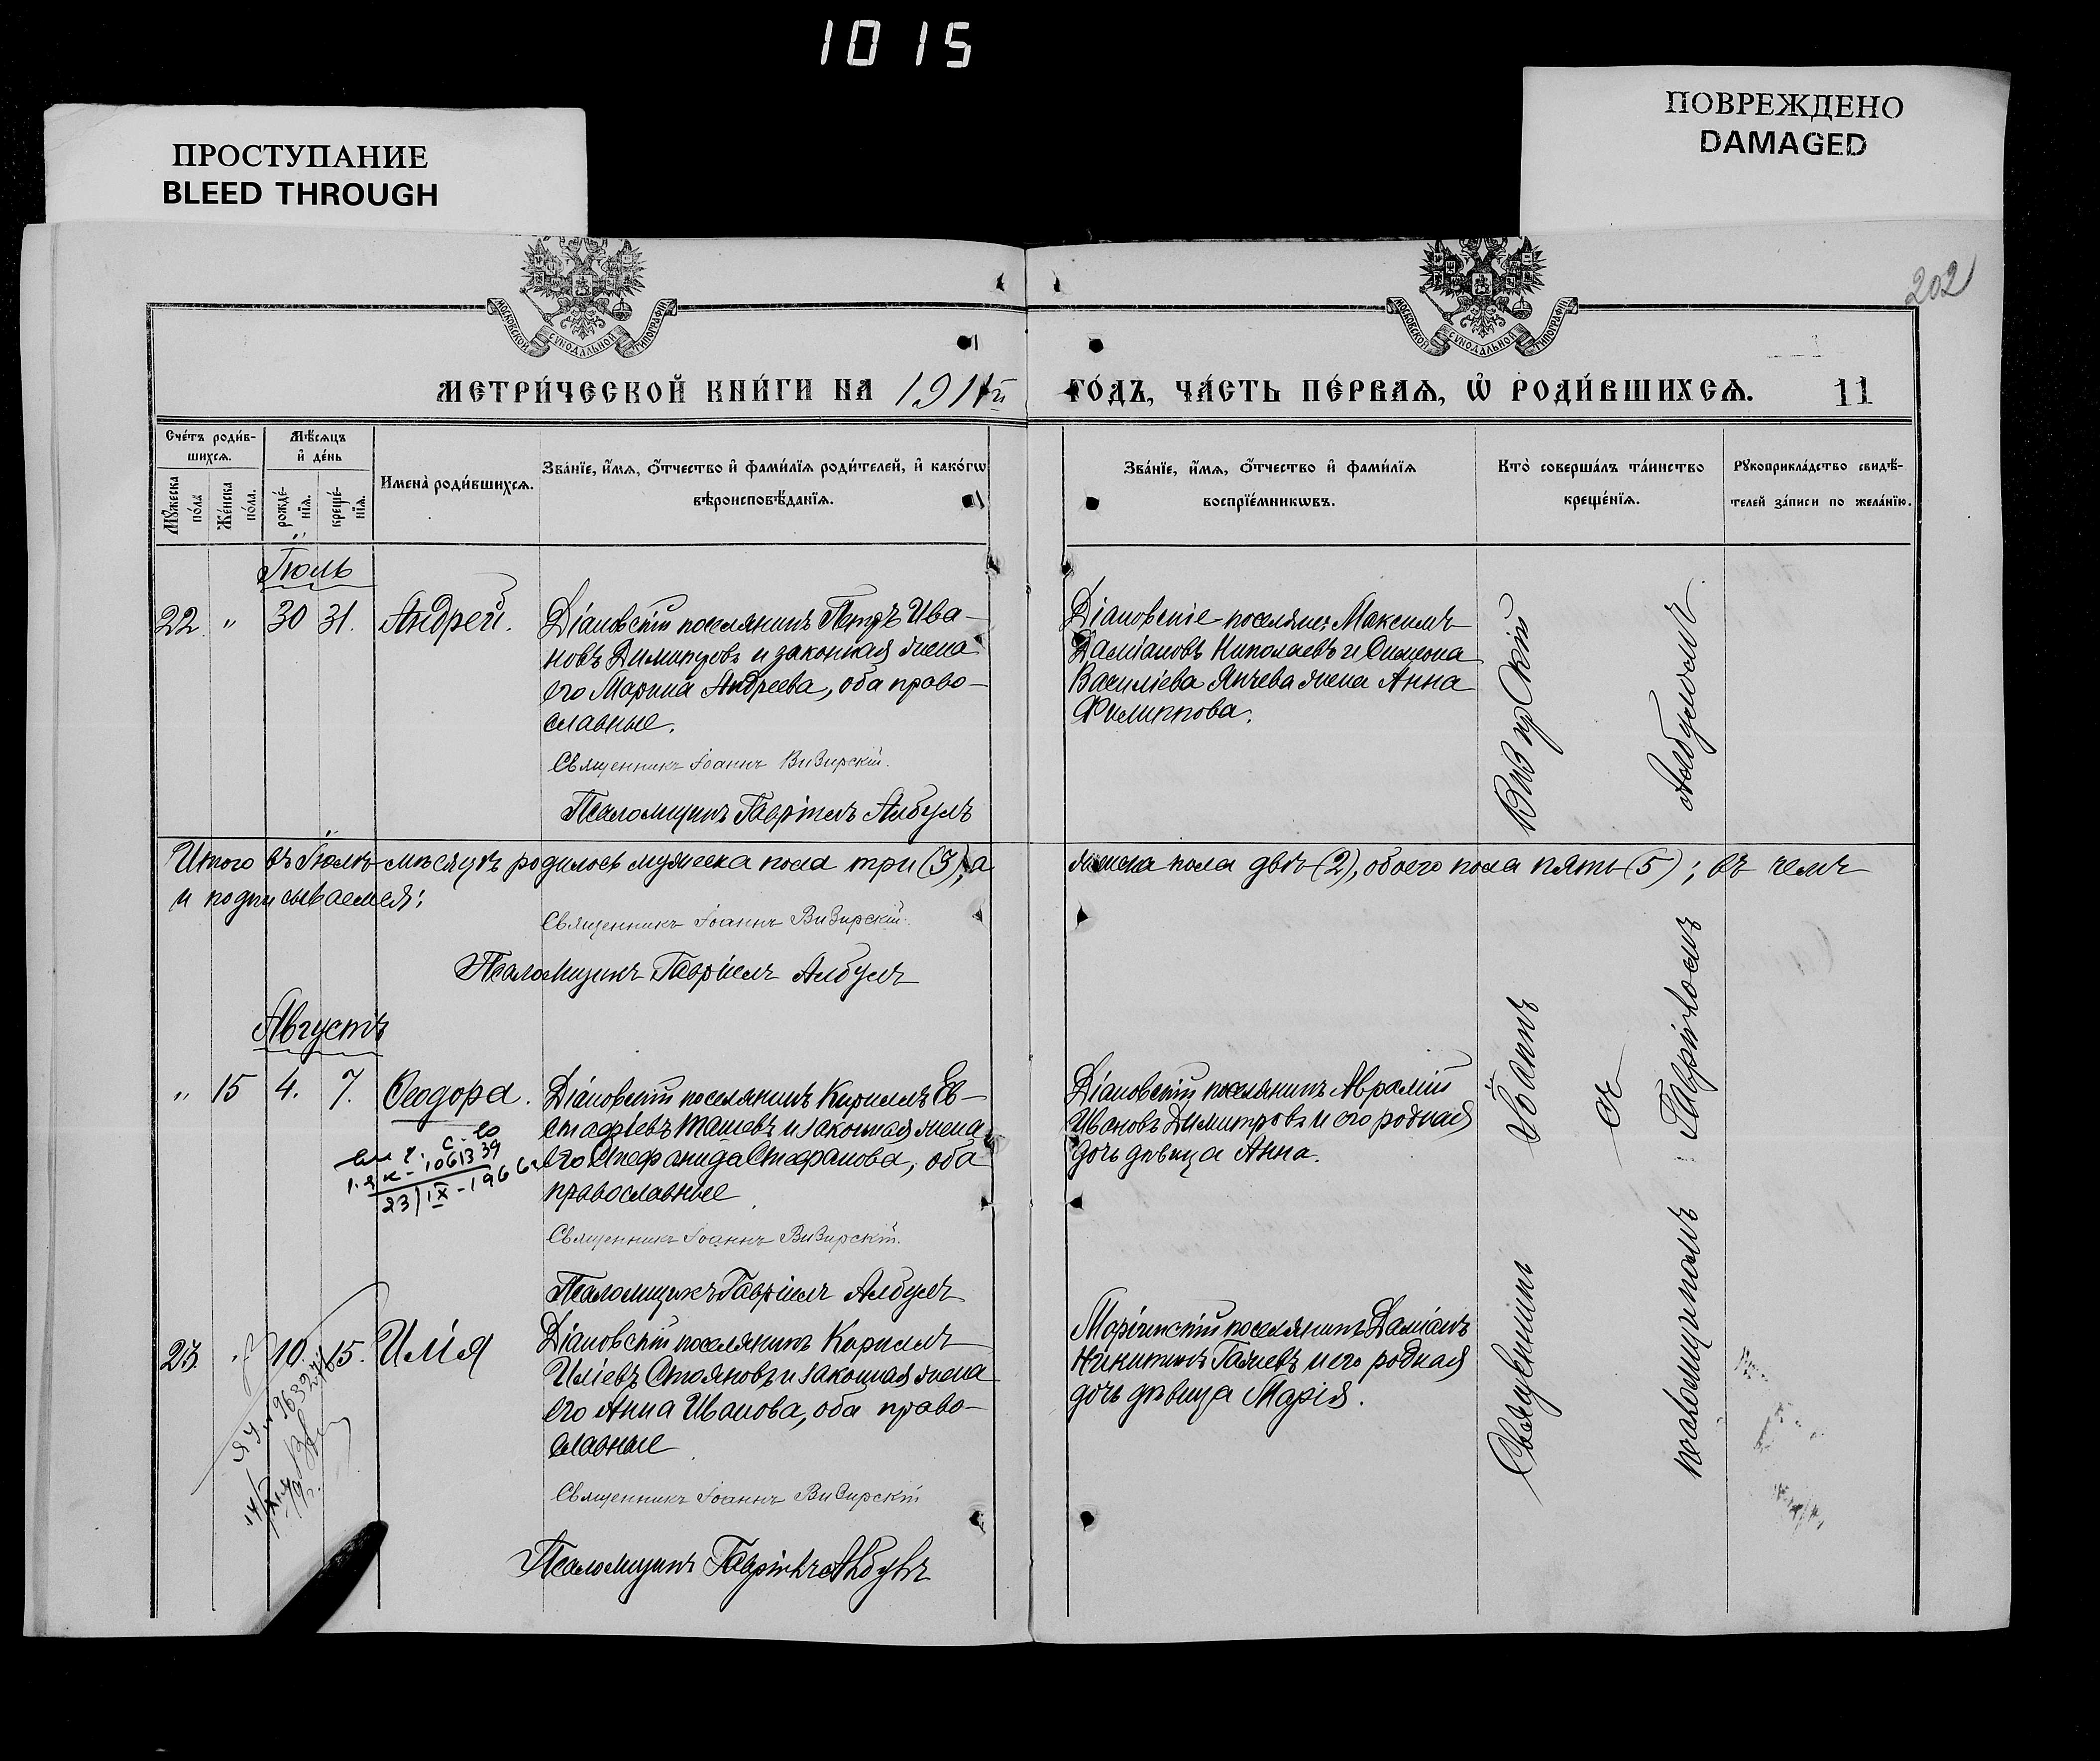 1015
ПРОСТУПАНИЕ
BLEED THROUGH
ПОВРЕЖДЕНО
DAMAGED
202
МОСКОВСКОЙ СѴНОДАЛЬНОЙ ТИПОГРАФІИ
МОСКОВСКОЙ СѴНОДАЛЬНОЙ ТИПОГРАФІИ
МЕТРИ́ЧЕСКОЙ КНИ́ГИ НА 1911й ГО́ДЪ, ЧА́СТЬ ПЕ́РВАѦ, Ѡ҆ РОДИ́ВШИХСѦ. 11
Сче́тъ роди́в-
шихсѧ.
Мѣ́сѧцъ
и҆ де́нь
Мꙋ́жеска по́ла
Же́нска по́ла.
рожде́-
нїѧ.
креще́-
нїѧ.
Имена̀ роди́вшихсѧ.
Зва́нїе, и҆́мѧ, ѻ҆́тчество и҆ фами́лїѧ роди́телей, и҆ како́гѡ
вѣроисповѣ́данїѧ.
Зва́нїе, и҆́мѧ, ѻ҆́тчество и҆ фами́лїѧ
воспрїе́мникѡвъ.
Кто̀ соверша́лъ та́инство
креще́нїѧ.
Рꙋкоприкла́дство свидѣ́-
телей за́писи по жела́нїю.
Іюль
22. " 30 31. Андрей.
Діановскій поселянинъ Петръ Ива-
новъ Димитровъ и законная жена
его Марина Андреева, оба право-
славные.
Священникъ Іоаннъ Визирскій.
Псаломщикъ Гавріилъ Албулъ
Діановскіе поселяне: Максимъ
Даміановъ Николаевъ и Симеона
Василіева Янчева жена Анна
Филиппова.
Итого въ Іюлѣ мѣсяцѣ родилось мужеска пола три (3), а женска пола двѣ (2), обоего пола пять (5); въ чемъ
и подписываемся:
Священникъ Іоаннъ Визирскій.
Псаломщикъ Гавріилъ Албулъ
Августъ
" 15 4. 7. Ѳеодора.
1061339
23/IX-1966г
Діановскій поселянинъ Кириллъ Ев-
стафіевъ Ташевъ и законная жена
его Стефанида Стефанова, оба
православные
Священникъ Іоаннъ Визирскій.
Псаломщикъ Гавріилъ Албулъ
Діановскій поселянинъ Авраамій
Ивановъ Димитровъ и его родная
дочь дѣвица Анна.
23. 10. 15. Илія
Діановскій поселянинъ Кириллъ
Иліевъ Стояновъ и законная жена
его Анна Иванова, оба право-
славные
Священникъ Іоаннъ Визирскій
Псаломщикъ Гавріилъ Албулъ
Маріинскій поселянинъ Даміанъ
Никитинъ Гагіевъ и его родная
дочь дѣвица Марія.
Священникъ Іоаннъ Визирскій
съ
псаломщикомъ Гавріиломъ Албуломъ